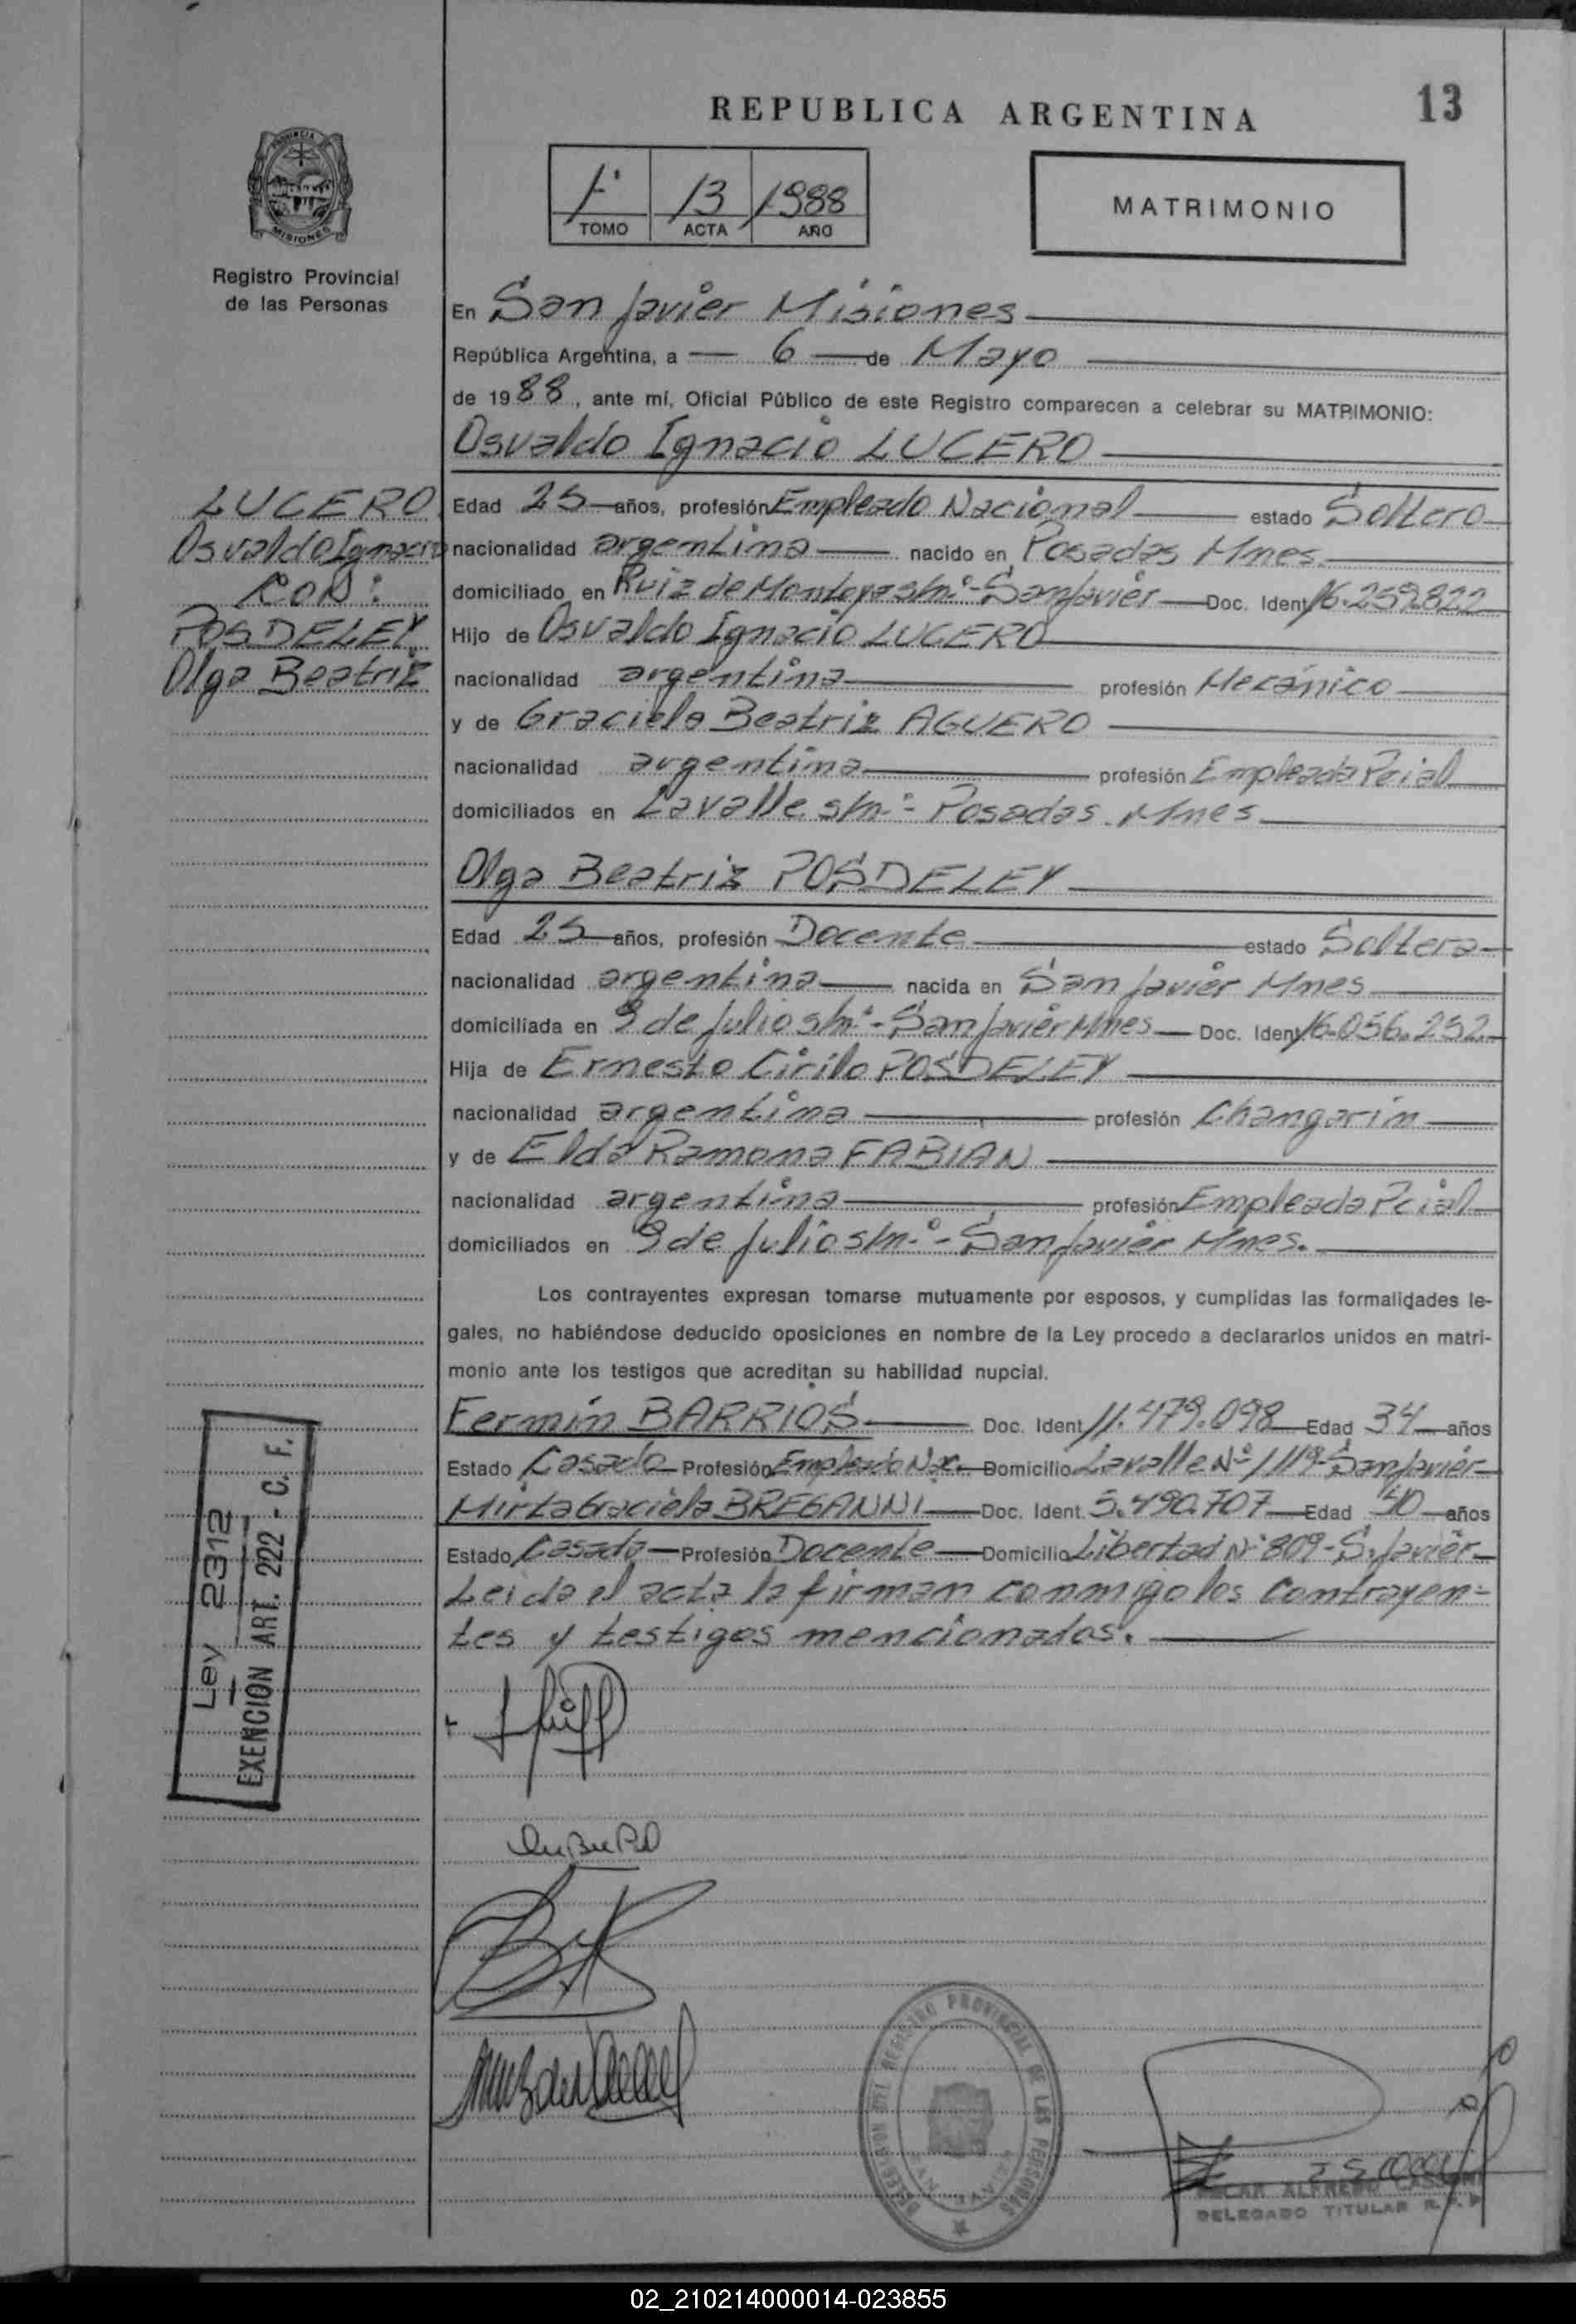 REPUBLICA ARGENTINA
13
1º
13
1988
TOMO
ACTA
AÑO
MATRIMONIO
PROVINCIA
MISIONES
Registro Provincial
de las Personas
En San Javier Misiones
República Argentina, a 6 de Mayo
de 1988, ante mí, Oficial Público de este Registro comparecen a celebrar su MATRIMONIO:
Osvaldo Ignacio LUCERO
LUCERO
Osvaldo Ignacio
CON:
POSDELEY
Olga Beatriz
Edad 25 años, profesión Empleado Nacional estado Soltero
nacionalidad argentina nacido en Posadas Mnes.
domiciliado en Ruiz de Montoya s/nº - San Javier Doc. Ident 16.259.822
Hijo de Osvaldo Ignacio LUCERO
nacionalidad argentina profesión Mecánico
y de Graciela Beatriz AGUERO
nacionalidad argentina profesión Empleada Pcial
domiciliados en Lavalle s/nº - Posadas Mnes
Olga Beatriz POSDELEY
Edad 25 años, profesión Docente estado Soltera
nacionalidad argentina nacida en San Javier Mnes
domiciliada en 9 de Julio s/nº - San Javier Mnes Doc. Ident 16.056.252
Hija de Ernesto Cirilo POSDELEY
nacionalidad argentina profesión Changarin
y de Elda Ramona FABIAN
nacionalidad argentina profesión Empleada Pcial
domiciliados en 9 de Julio s/nº - San Javier Mnes.
Los contrayentes expresan tomarse mutuamente por esposos, y cumplidas las formalidades le-
gales, no habiéndose deducido oposiciones en nombre de la Ley procedo a declararlos unidos en matri-
monio ante los testigos que acreditan su habilidad nupcial.
Fermín BARRIOS Doc. Ident 11.479.098 Edad 34 años
Estado Casado Profesión Empleado Nac. Domicilio Lavalle Nº 1119 - San Javier
Mirta Graciela BREGANNI Doc. Ident. 5.490.707 Edad 40 años
Estado Casada Profesión Docente Domicilio Libertad Nº 809 - S. Javier
Leida el acta la firman conmigo los contrayen=
tes y testigos mencionados.
Ley 2312
EXENCION ART. 222 - C. F.
DELEGACION DEL REGISTRO PROVINCIAL DE LAS PERSONAS
SAN JAVIER
OSCAR ALFREDO
DELEGADO TITULAR R. P. P.
02_210214000014-023855